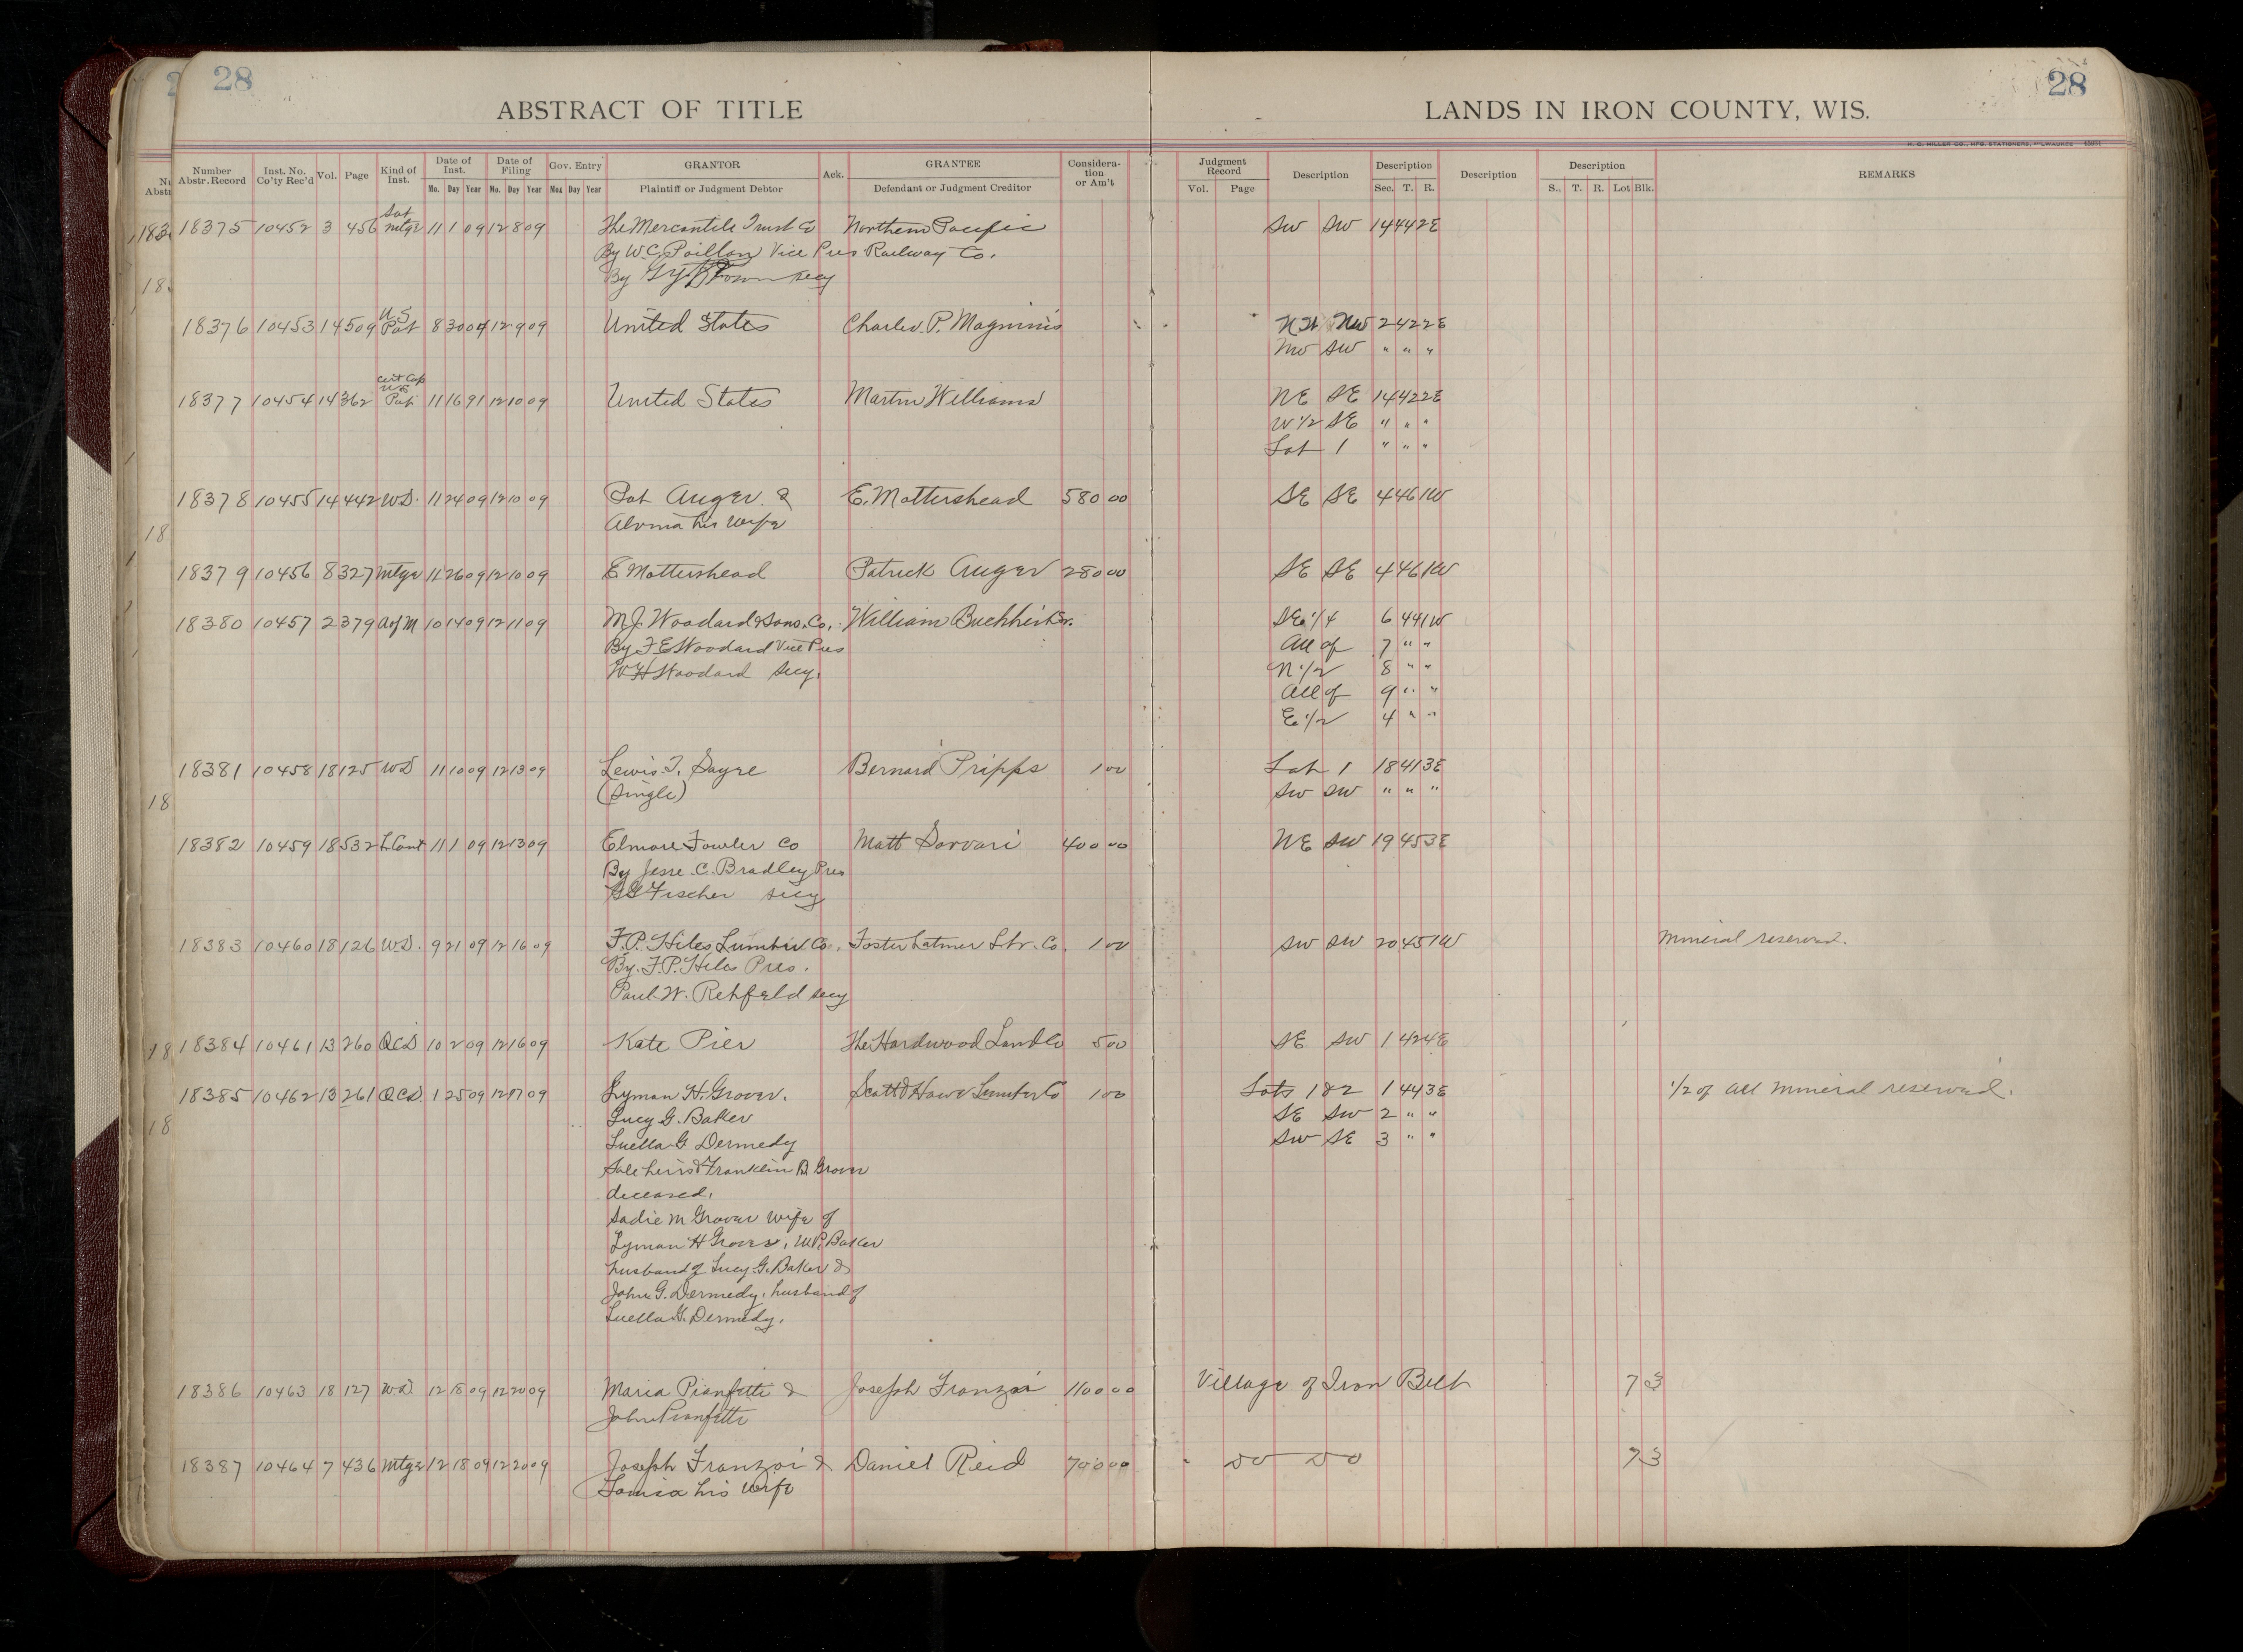 28
28
ABSTRACT OF TITLE
LANDS IN IRON COUNTY, WIS.
H. C. MILLER CO., MFG. STATIONERS, MILWAUKEE
Number Abstr. Record Inst. No. Co'ty Rec'd Vol. Page Kind of Inst. Date of Inst. Date of Filing Gov. Entry GRANTOR Ack. GRANTEE Consideration or Am't Judgment Record Description Description Description Description REMARKS
Mo. Day Year Mo. Day Year Mo. Day Year Plaintiff or Judgment Debtor Defendant or Judgment Creditor Vol. Page Sec. T. R. S. T. R. Lot Blk.
Sat
18375 10452 3 456 mtge 11 1 09 12 8 09 The Mercantile Trust Co Northern Pacific SW SW 14 44 2E
By W.C. Poillon Vice Pres Railway Co.
By Brown secy
U.S
18376 10453 14 509 Pat 8 30 04 12 9 09 United States Charles P. Magninis NW 2 42 2E
NW SW " " "
Cert Cop
U.S
18377 10454 14 362 Pat 11 16 91 12 10 09 United States Martin Williams NE SE 14 42 2E
W 1/2 SE " " "
Lot 1 " " "
18378 10455 14 442 W.D. 11 24 09 12 10 09 Pat Auger & E. Mottershead 580 00 SE SE 4 46 1W
Alvina his wife
18379 10456 8 327 mtge 11 26 09 12 10 09 E Mottershead Patrick Auger 280 00 SE SE 4 46 1W
18380 10457 2 379 A of M 10 14 09 12 11 09 M.J. Woodard & Sons. Co. William Buchhis SE 1/4 6 44 1W
By F E Woodard Vice Pres All of 7 " "
W H Woodard Secy. N 1/2 8 " "
All of 9 " "
E 1/2 4 " "
18381 10458 18 125 W D 11 10 09 12 13 09 Lewis T. Sayre Bernard Pripps 1 00 Lot 1 18 41 3E
(single) SW SW " " "
18382 10459 18 532 L Cont 11 1 09 12 13 09 Elmore Fowler Co Matt Sarvari 400 00 NE SW 19 45 3E
By Jesse C. Bradley Pres
Fischer secy
18383 10460 18 126 W.D. 9 21 09 12 16 09 F.P. Hiles Lumber Co. Foster Latimer Lbr. Co. 1 00 SW SW 20 45 1W Mineral reserved.
By. F.P. Hiles Pres.
Paul W. Rehfeld secy
18384 10461 13 260 QCD 10 2 09 12 16 09 Kate Pier The Hardwood Land Co 5 00 SE SW 1 42 4E
18385 10462 13 261 QCD. 1 25 09 12 17 09 Lyman H. Grover. Scott & Howe Lumber Co 1 00 Lots 1 & 2 1 44 3E 1/2 of all mineral reserved.
Lucy G. Baker SE SW 2 " "
Luella G Dermedy SW SE 3 " "
Sole heirs of Franklin B. Grover
deceased.
Sadie M Grover wife of
Lyman H Grover, W.P. Baker
husband of Lucy G. Baker &
John G. Dermedy, husband of
Luella G. Dermedy.
18386 10463 18 127 W D. 12 18 09 12 20 09 Maria Pianfetti & Joseph Franzoi 1100 00 Village of Iron Belt 7 3
John Pianfetti
18387 10464 7 436 Mtge 12 18 09 12 20 09 Joseph Franzoi & Daniel Reid 700 00 " do do 7 3
Louisa his wife